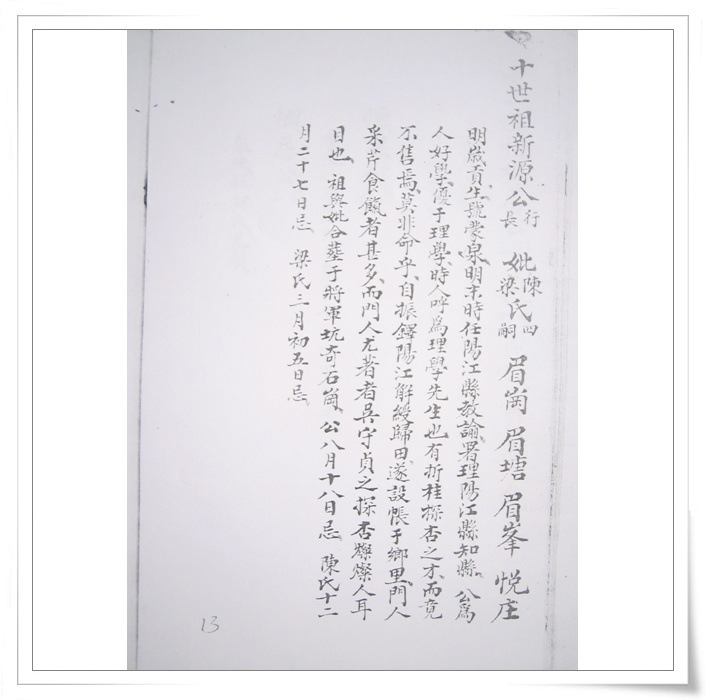 十世祖新源公行長 妣陳梁氏四嗣 眉崗 眉塘 眉峯 悦庄
明歲貢生、號蒙泉、明末時任陽江縣教諭、署理陽江縣知縣、公爲
人好學、優于理學、時人呼爲理學先生也、有折桂探杏之才、而竟
不售焉、莫非命乎、自振鐸陽江解綬歸田、遂設帳于鄉里、門人
采芹食餼者甚多、而門人尤著者吳守貞之探杏燦燦人耳
目也、祖與妣合塟于將軍坑奇石崗、公八月十八日忌、陳氏十二
月二十七日忌、梁氏三月初五日忌、
13